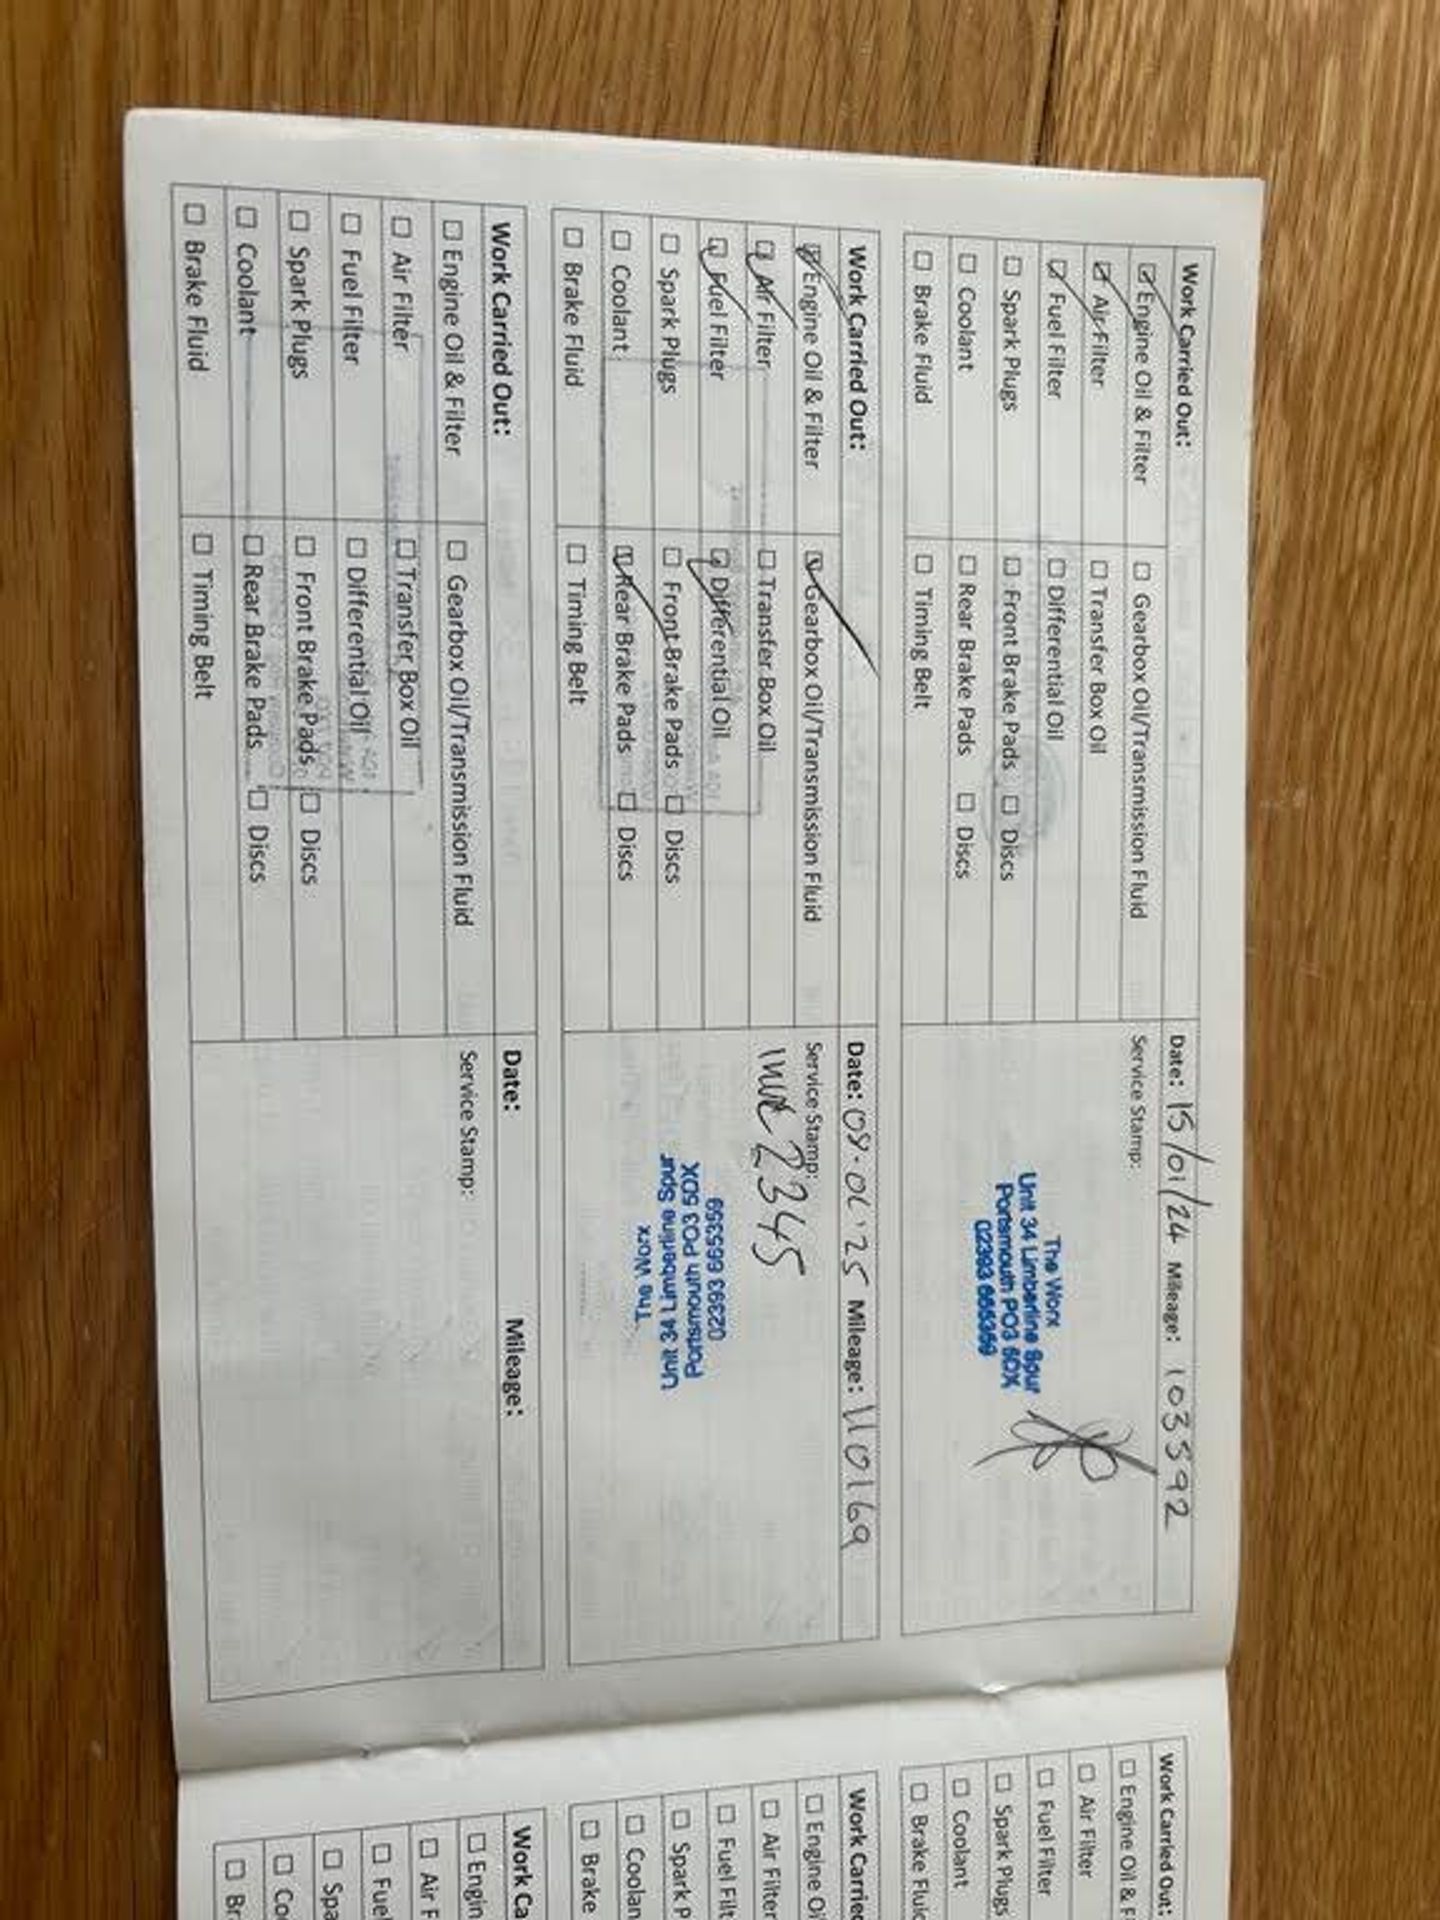 Work Carried Out:
Date: 15/01/24 Mileage: 103592
☑ Engine Oil & Filter
☐ Gearbox Oil/Transmission Fluid
Service Stamp:
☑ Air Filter
☐ Transfer Box Oil
☑ Fuel Filter
☐ Differential Oil
☐ Spark Plugs
☐ Front Brake Pads ☐ Discs
☐ Coolant
☐ Rear Brake Pads ☐ Discs
☐ Brake Fluid
☐ Timing Belt
The Worx
Unit 34 Limberline Spur
Portsmouth PO3 5DX
02393 665359
Work Carried Out:
Date: 08.01.25 Mileage: 110169
☑ Engine Oil & Filter
☑ Gearbox Oil/Transmission Fluid
Service Stamp:
☑ Air Filter
☐ Transfer Box Oil
☑ Fuel Filter
☑ Differential Oil
☐ Spark Plugs
☐ Front Brake Pads ☐ Discs
☐ Coolant
☑ Rear Brake Pads ☐ Discs
☐ Brake Fluid
☐ Timing Belt
2345
The Worx
Unit 34 Limberline Spur
Portsmouth PO3 5DX
02393 665359
Work Carried Out:
Date: Mileage:
☐ Engine Oil & Filter
☐ Gearbox Oil/Transmission Fluid
Service Stamp:
☐ Air Filter
☐ Transfer Box Oil
☐ Fuel Filter
☐ Differential Oil
☐ Spark Plugs
☐ Front Brake Pads ☐ Discs
☐ Coolant
☐ Rear Brake Pads ☐ Discs
☐ Brake Fluid
☐ Timing Belt
Work Carried Out:
☐ Engine Oil & F
☐ Air Filter
☐ Fuel Filter
☐ Spark Plugs
☐ Coolant
☐ Brake Fluid
Work Carried
☐ Engine Oi
☐ Air Filter
☐ Fuel Filt
☐ Spark P
☐ Coolan
☐ Brake
Work Ca
☐ Engin
☐ Air F
☐ Fuel
☐ Spa
☐ Co
☐ Br